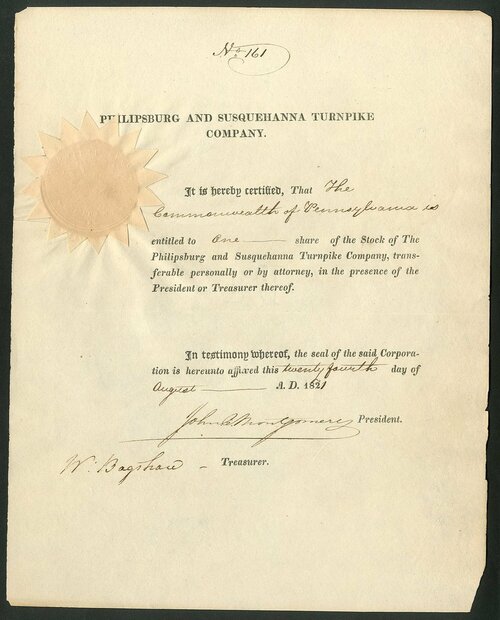 No 161
PHILIPSBURG AND SUSQUEHANNA TURNPIKE
COMPANY.
It is hereby certified, That The
Commonwealth of Pennsylvania is
entitled to One share of the Stock of The
Philipsburg and Susquehanna Turnpike Company, trans-
ferable personally or by attorney, in the presence of the
President or Treasurer thereof.
In testimony whereof, the seal of the said Corpora-
tion is hereunto affixed this twenty fourth day of
August A. D. 1821
John A Montgomery President.
W. Bagshaw Treasurer.